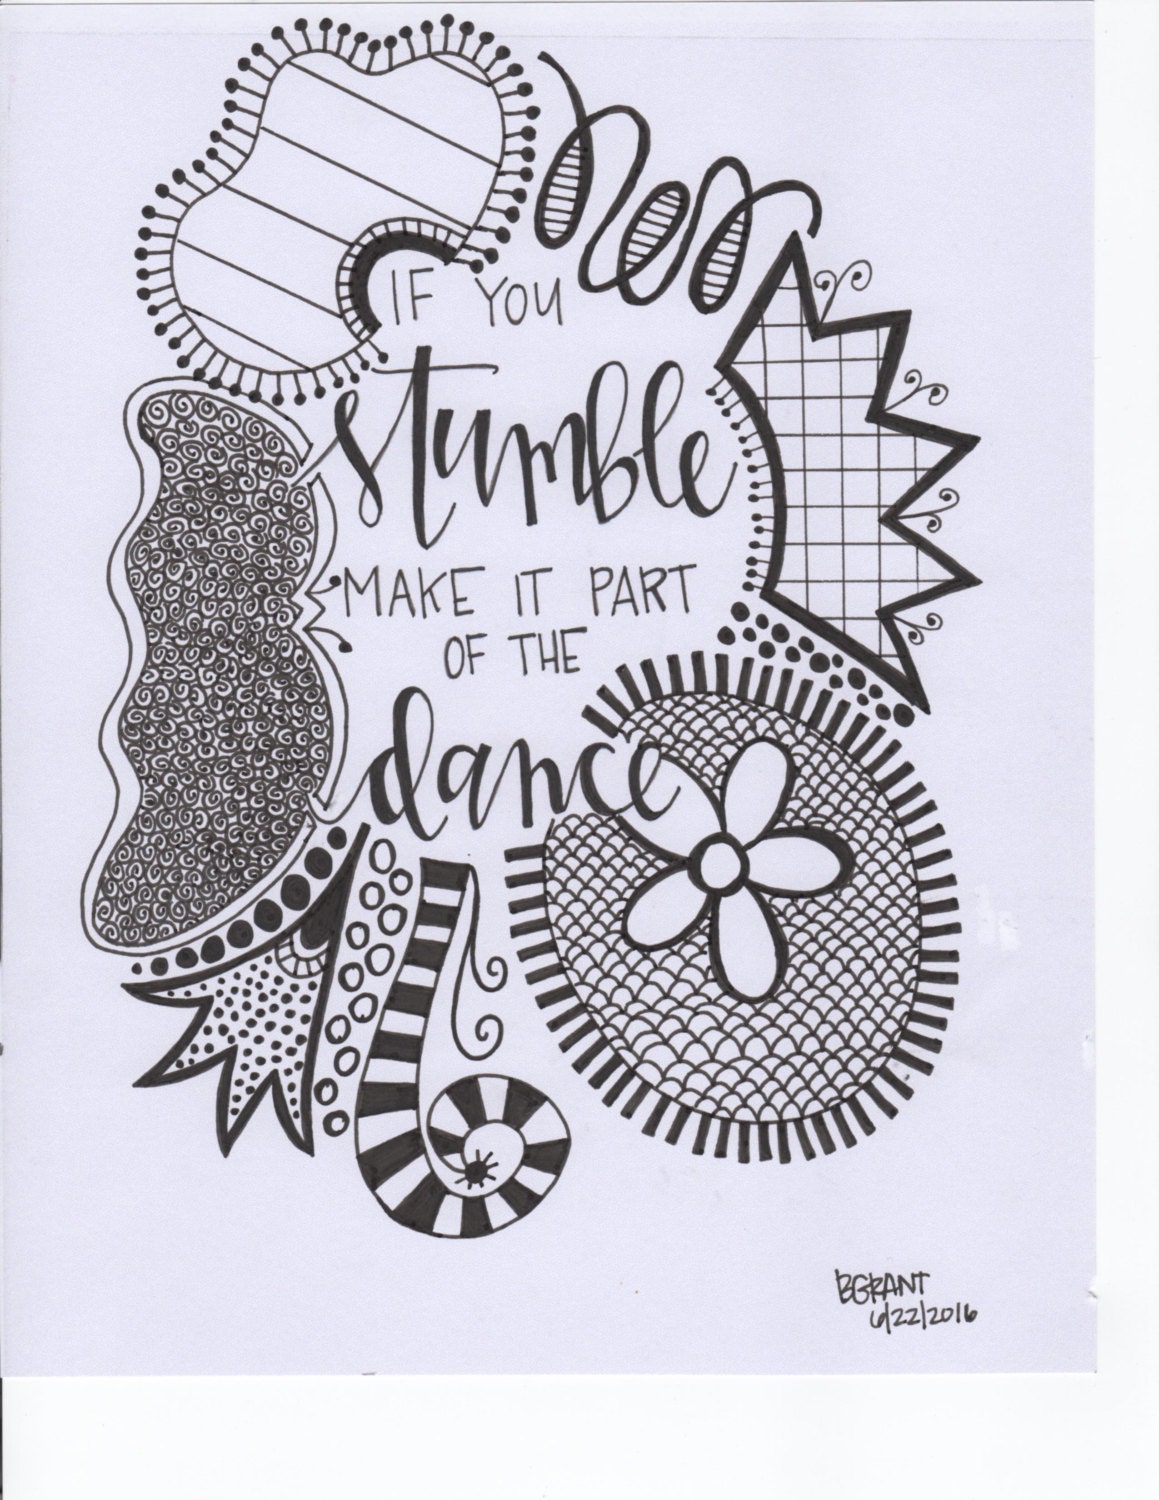 IF YOU
stumble
MAKE IT PART
OF THE
dance
BGRANT
6/22/2016